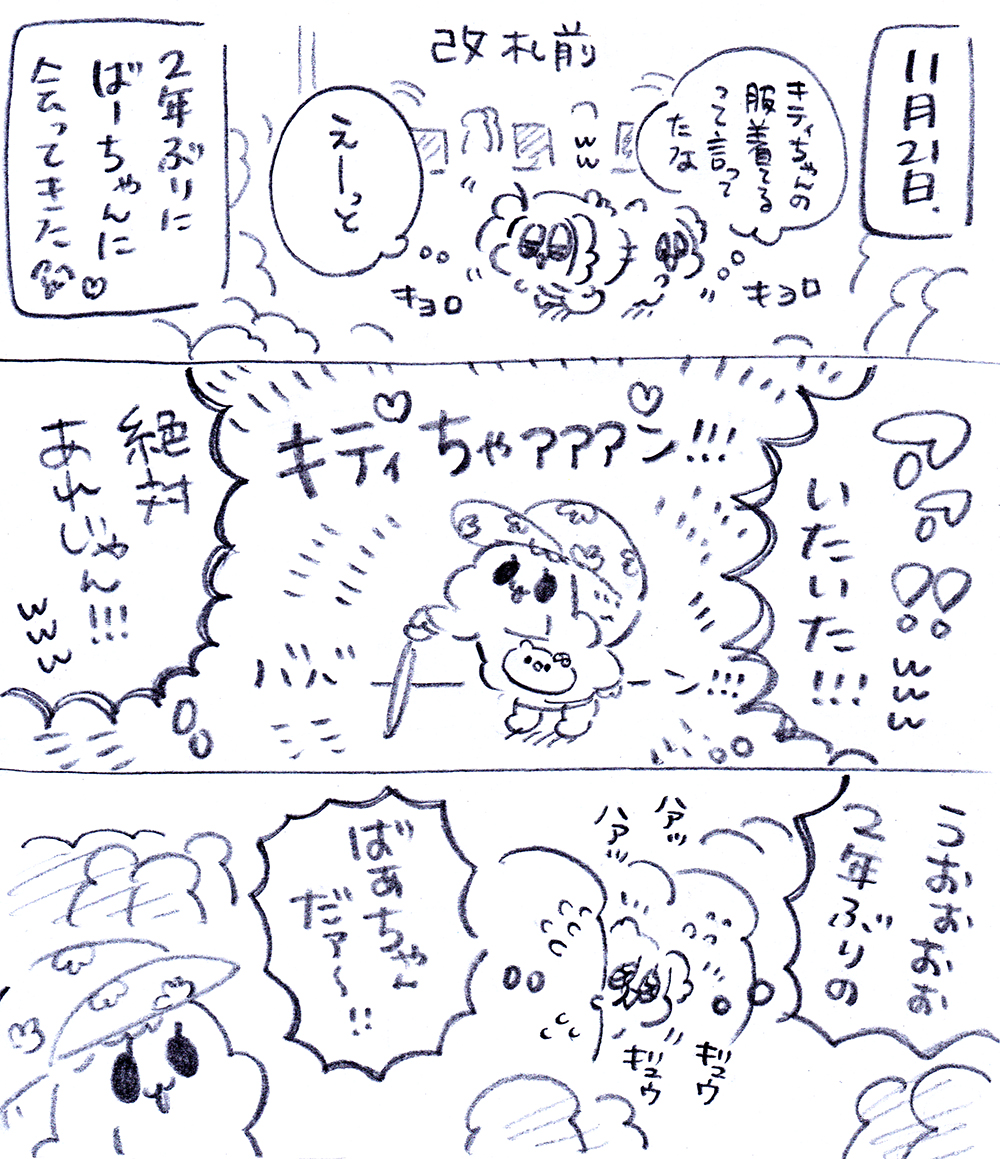 11月21日.
改札前
キティちゃんの
服着てる
って言って
たな
キョロ
えーっと
キョロ
ww
2年ぶりに
ばーちゃんに
会ってきた♡
いたいた!!!
www
キティちゃァァァン!!!
ババーン!!!
絶対
あれじゃん!!!
www
うおおおお
2年ぶりの
ハァッ
ハァッ
ギュウ
ギュウ
ばあちゃん
だァ〜!!